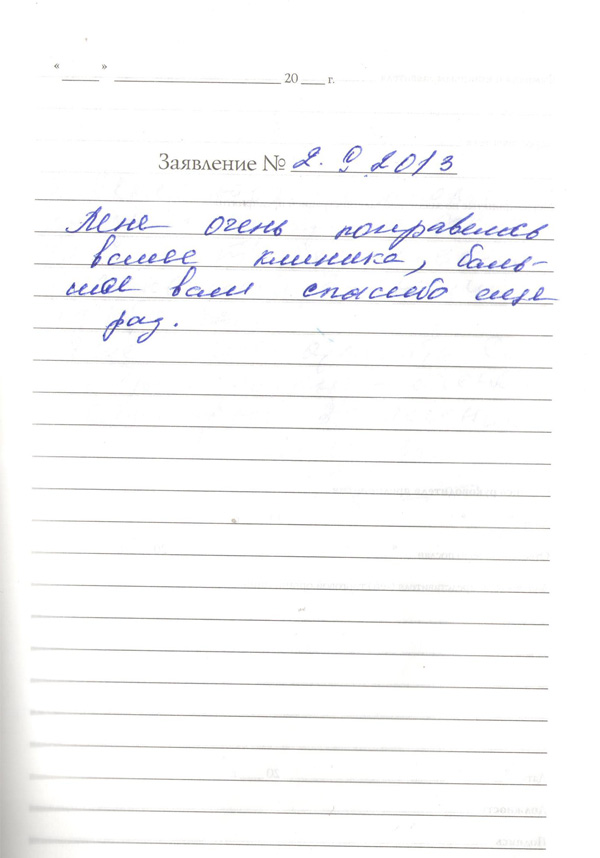 « ____ » ____________ 20 ___ г.
Заявление № 2.9.2013
Мне очень понравелось
вашее клиника, боль-
шое вам спасибо еще
раз.